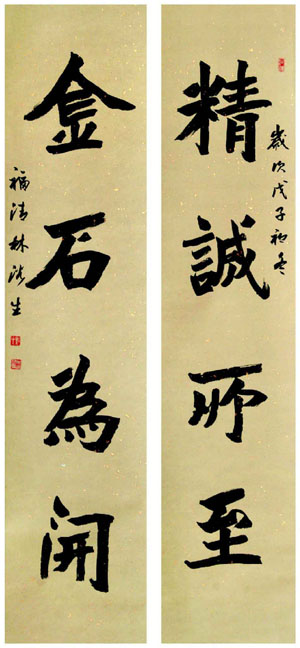 歲次戊子初冬
精誠所至
金石為開
福清林
生